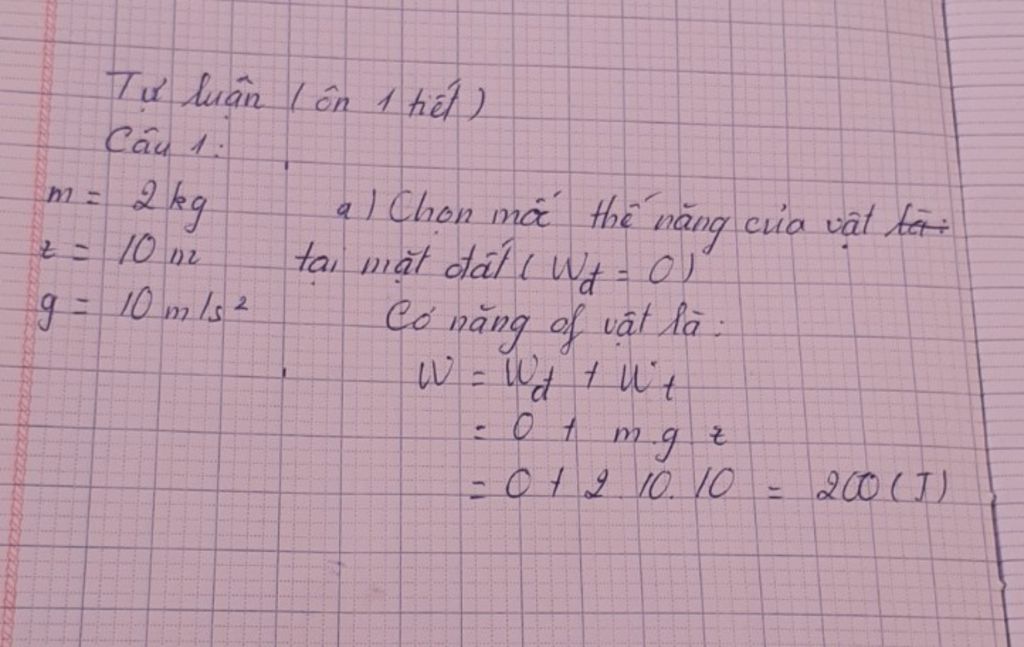 Tự luận (ôn 1 tiết)
Câu 1:
m = 2 kg
z = 10 m
g = 10 m/s²
a) Chọn mốc thế năng của vật là:
tại mặt đất (Wđ = 0)
Cơ năng of vật là:
W = Wđ + Wt
= 0 + m.g z
= 0 + 2.10.10 = 200 (J)